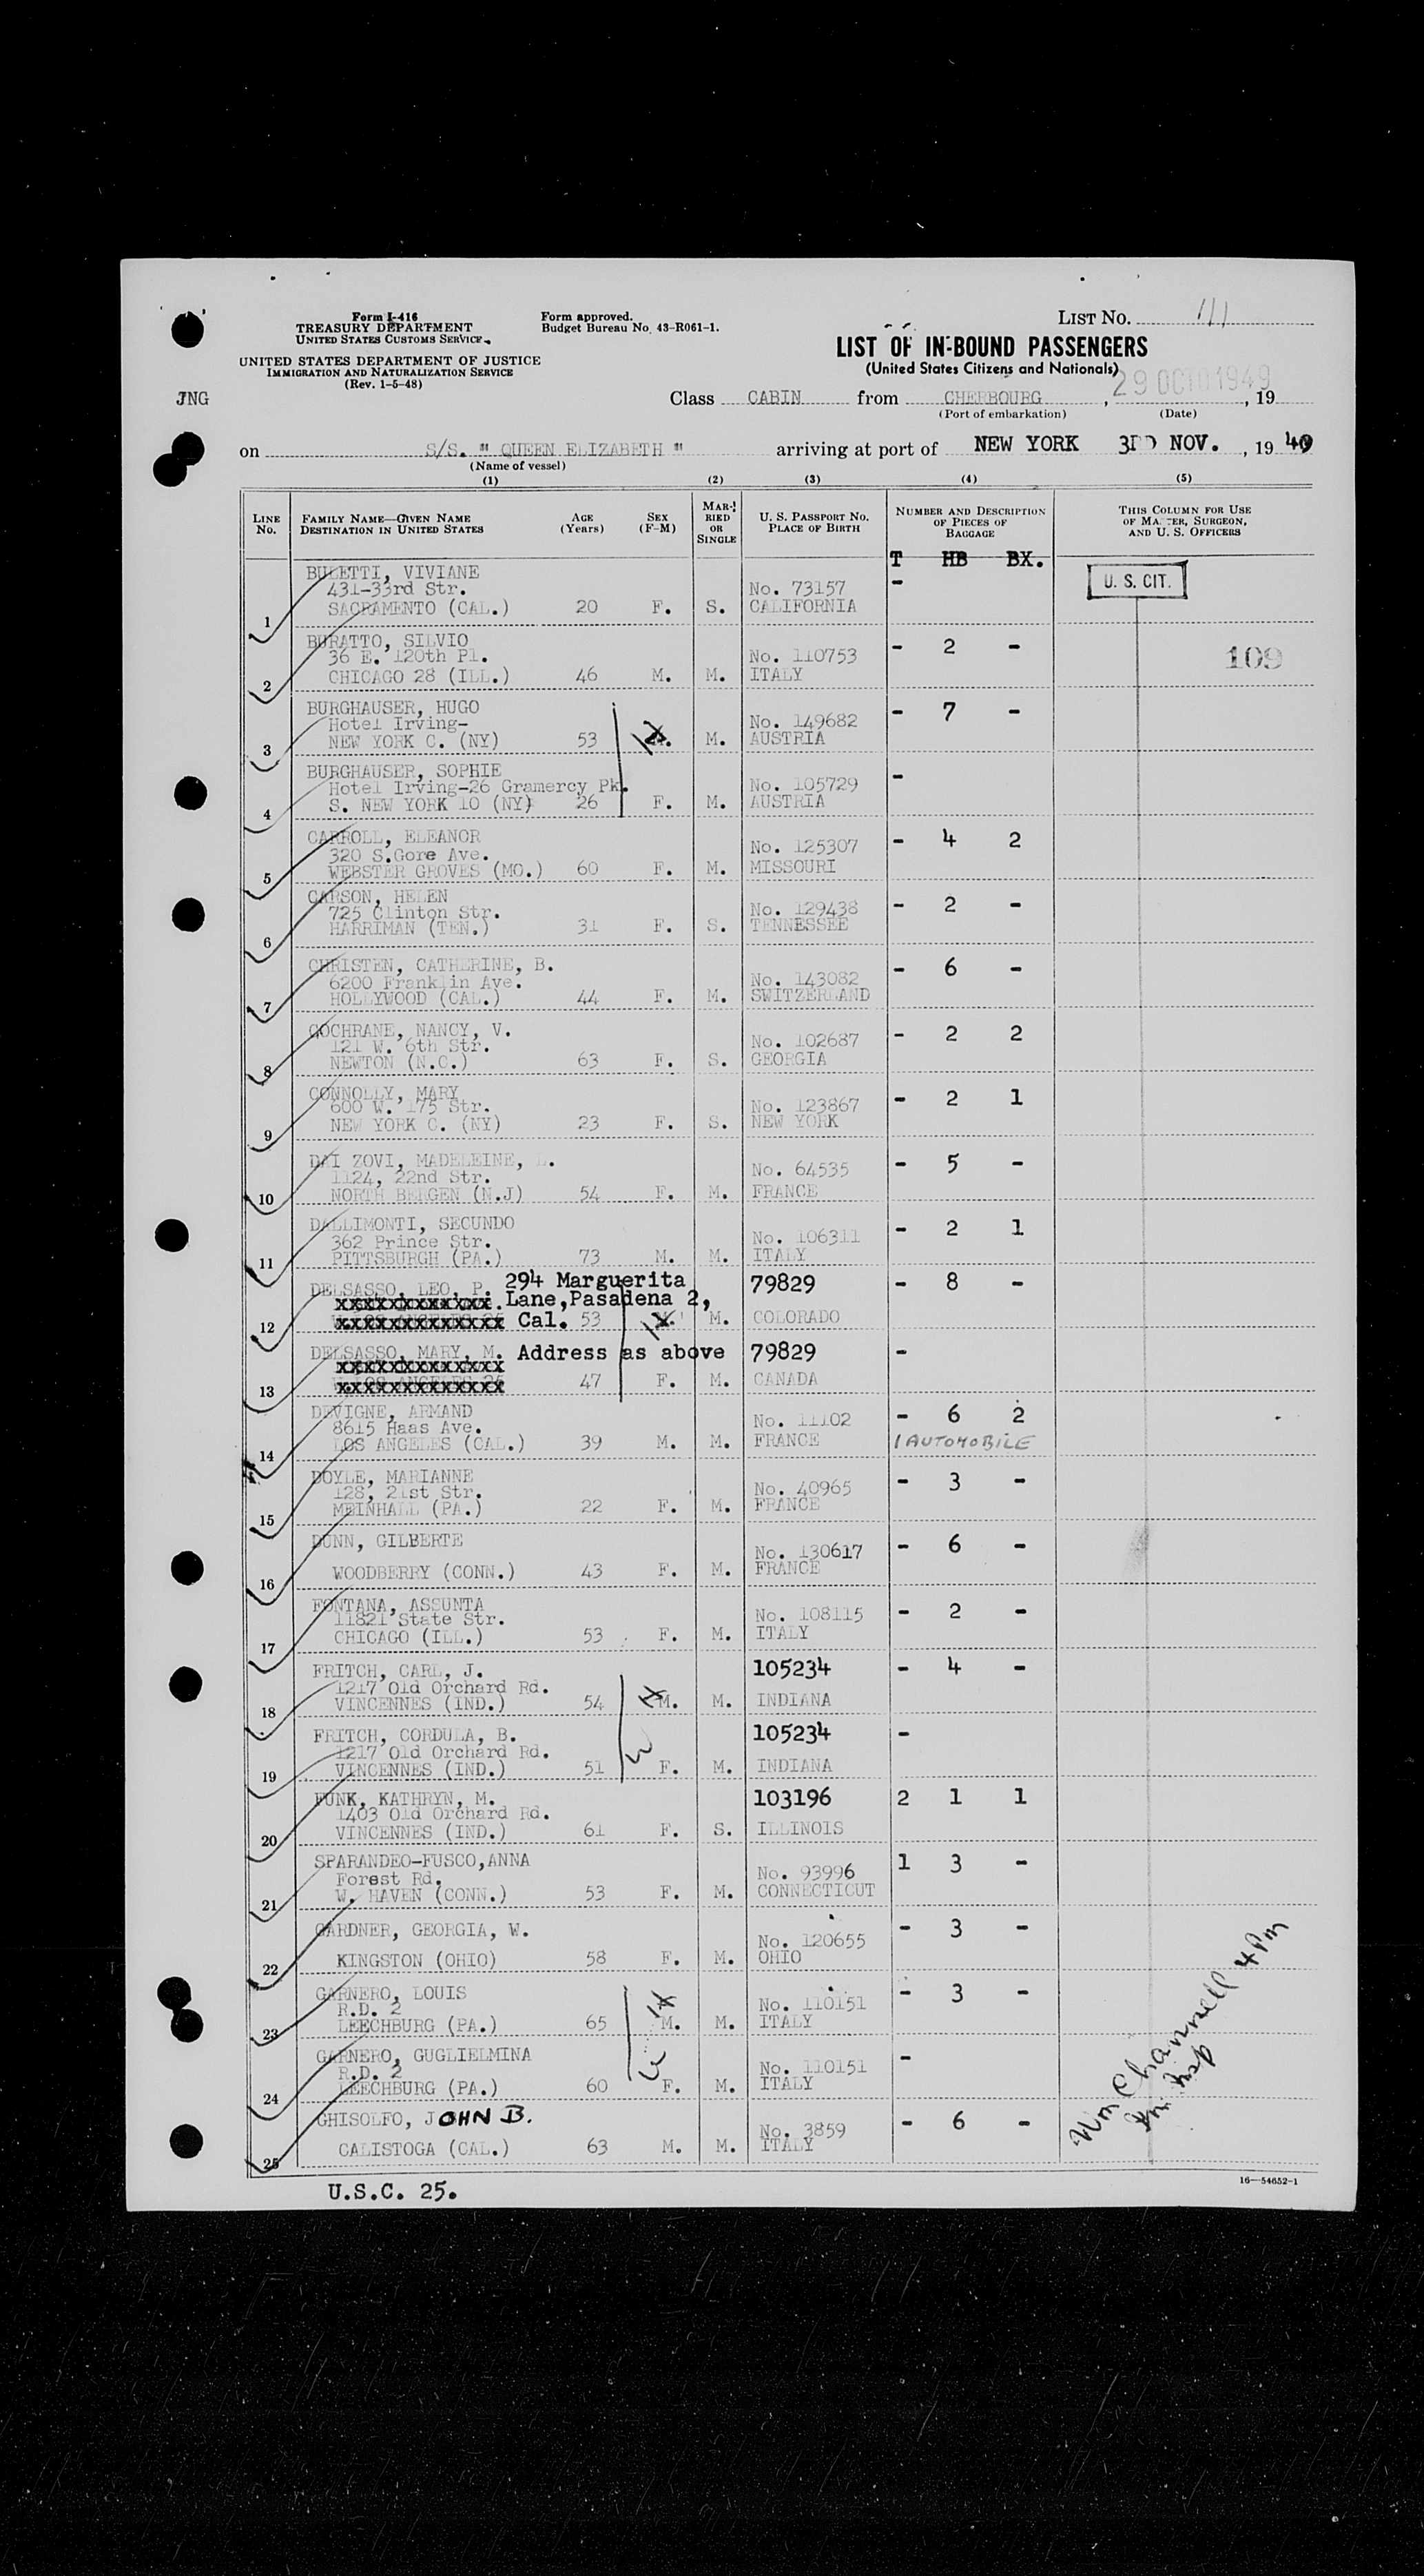 Form I-416
TREASURY DEPARTMENT
UNITED STATES CUSTOMS SERVICE
UNITED STATES DEPARTMENT OF JUSTICE
IMMIGRATION AND NATURALIZATION SERVICE
(Rev. 1-5-48)
Form approved.
Budget Bureau No. 43-R061-1.
LIST No. 111
LIST OF IN-BOUND PASSENGERS
(United States Citizens and Nationals)
JNG
Class CABIN from CHERBOURG , 29 OCT 1949 , 19
(Port of embarkation) (Date)
on S/S. " QUEEN ELIZABETH " arriving at port of NEW YORK 3RD NOV. , 19 49
(Name of vessel)
(1) (2) (3) (4) (5)
LINE No. FAMILY NAME—GIVEN NAME DESTINATION IN UNITED STATES AGE (Years) SEX (F-M) MARRIED OR SINGLE U. S. PASSPORT NO. PLACE OF BIRTH NUMBER AND DESCRIPTION OF PIECES OF BAGGAGE THIS COLUMN FOR USE OF MASTER, SURGEON, AND U. S. OFFICERS
T HB BX.
BULETTI, VIVIANE -
431-33rd Str. No. 73157 U. S. CIT.
1 SACRAMENTO (CAL.) 20 F. S. CALIFORNIA
BURATTO, SILVIO - 2 -
36 E. 120th Pl. No. 110753 109
2 CHICAGO 28 (ILL.) 46 M. M. ITALY
BURGHAUSER, HUGO - 7 -
Hotel Irving- No. 149682
3 NEW YORK C. (NY) 53 M. M. AUSTRIA
BURGHAUSER, SOPHIE -
Hotel Irving-26 Gramercy Pk. No. 105729
4 S. NEW YORK 10 (NY) 26 F. M. AUSTRIA
CARROLL, ELEANOR - 4 2
320 S.Gore Ave. No. 125307
5 WEBSTER GROVES (MO.) 60 F. M. MISSOURI
CARSON, HELEN - 2 -
725 Clinton Str. No. 129438
6 HARRIMAN (TEN.) 31 F. S. TENNESSEE
CHRISTEN, CATHERINE, B. - 6 -
6200 Franklin Ave. No. 143082
7 HOLLYWOOD (CAL.) 44 F. M. SWITZERLAND
COCHRANE, NANCY, V. - 2 2
121 W. 6th Str. No. 102687
8 NEWTON (N.C.) 63 F. S. GEORGIA
CONNOLLY, MARY - 2 1
600 W. 175 Str. No. 123867
9 NEW YORK C. (NY) 23 F. S. NEW YORK
DAI ZOVI, MADELEINE, L. - 5 -
1124, 22nd Str. No. 64535
10 NORTH BERGEN (N.J) 54 F. M. FRANCE
DALLIMONTI, SECUNDO - 2 1
362 Prince Str. No. 106311
11 PITTSBURGH (PA.) 73 M. M. ITALY
DELSASSO, LEO, P. 294 Marguerita 79829 - 8 -
xxxxxxxxxxxxx. Lane,Pasadena 2,
12 xxxxxxxxxxxxxx Cal. 53 M. M. COLORADO
DELSASSO, MARY, M. Address as above 79829 -
xxxxxxxxxxxxxx
13 xxxxxxxxxxxxxx 47 F. M. CANADA
DEVIGNE, ARMAND - 6 2
8615 Haas Ave. No. 11102
14 LOS ANGELES (CAL.) 39 M. M. FRANCE 1 AUTOMOBILE
DOYLE, MARIANNE - 3 -
128, 21st Str. No. 40965
15 MEINHALL (PA.) 22 F. M. FRANCE
DUNN, GILBERTE - 6 -
No. 130617
16 WOODBERRY (CONN.) 43 F. M. FRANCE
FONTANA, ASSUNTA - 2 -
11821 State Str. No. 108115
17 CHICAGO (ILL.) 53 F. M. ITALY
FRITCH, CARL, J. 105234 - 4 -
1217 Old Orchard Rd.
18 VINCENNES (IND.) 54 M. M. INDIANA
FRITCH, CORDULA, B. 105234 -
1217 Old Orchard Rd.
19 VINCENNES (IND.) 51 F. M. INDIANA
FUNK, KATHRYN, M. 103196 2 1 1
1403 Old Orchard Rd.
20 VINCENNES (IND.) 61 F. S. ILLINOIS
SPARANDEO-FUSCO,ANNA 1 3 -
Forest Rd. No. 93996
21 W. HAVEN (CONN.) 53 F. M. CONNECTICUT
GARDNER, GEORGIA, W. - 3 -
No. 120655
22 KINGSTON (OHIO) 58 F. M. OHIO
GARNERO, LOUIS - 3 -
R.D. 2 No. 110151
23 LEECHBURG (PA.) 65 M. M. ITALY
GARNERO, GUGLIELMINA -
R.D. 2 No. 110151
24 LEECHBURG (PA.) 60 F. M. ITALY
GHISOLFO, JOHN B. - 6 -
No. 3859
25 CALISTOGA (CAL.) 63 M. M. ITALY
Wm Channell 4 Pm
Im. Insp
U.S.C. 25.
16—54652-1